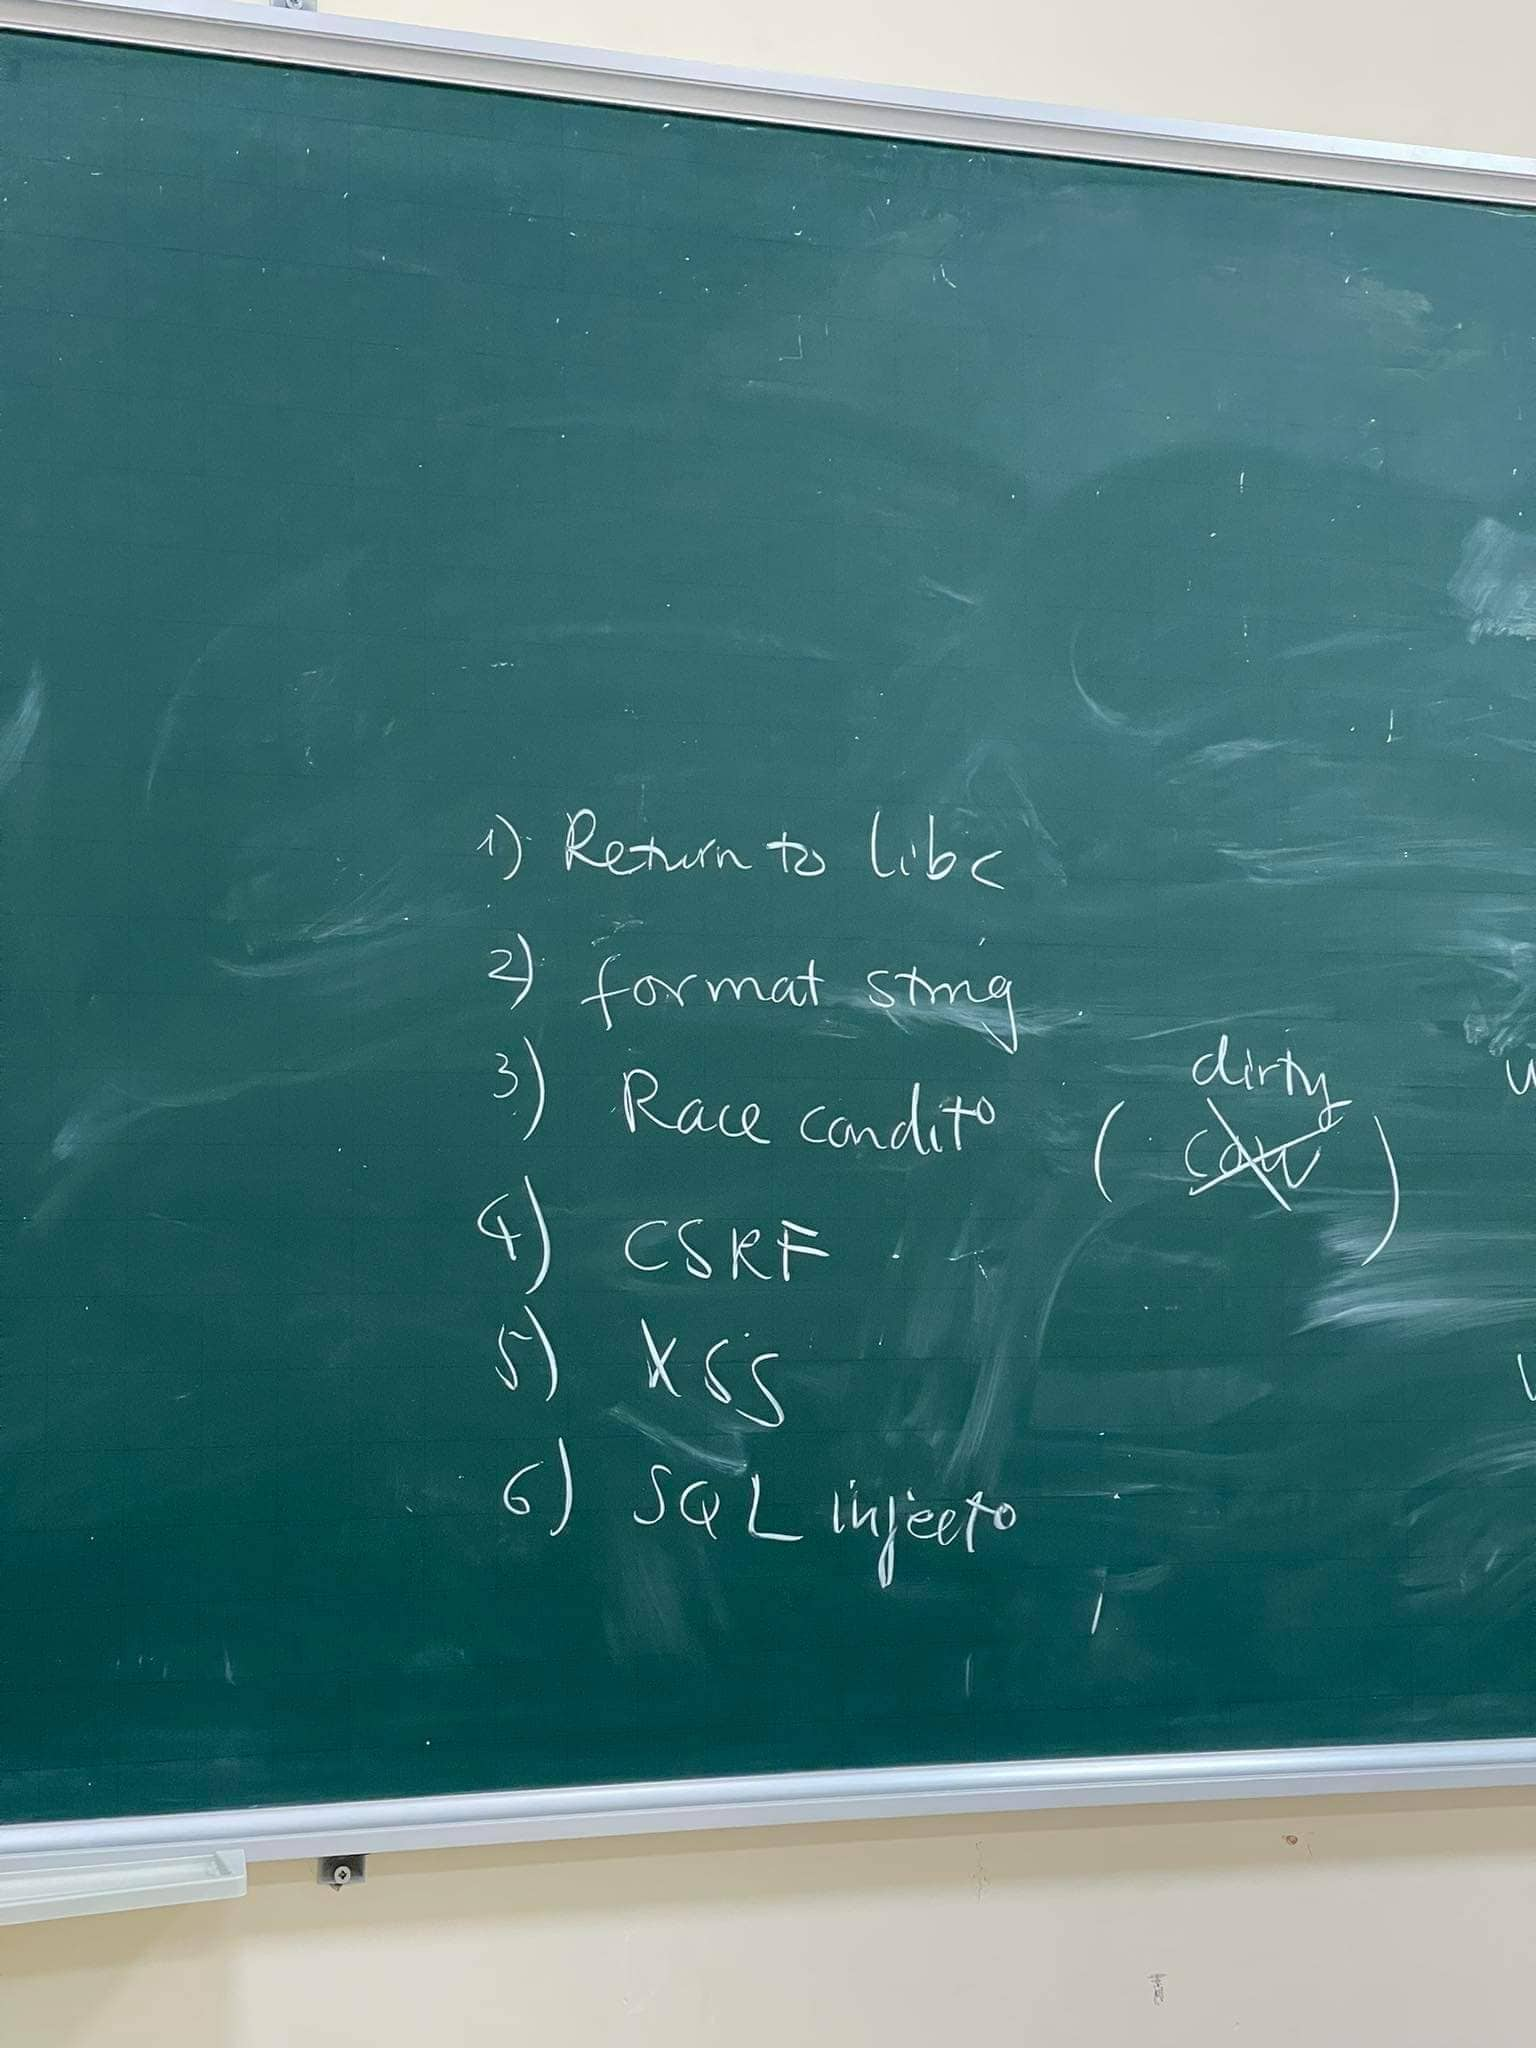 1) Return to libc
2) format string
3) Race condito ( dirty cow )
4) CSRF
5) XSS
6) SQL injecto